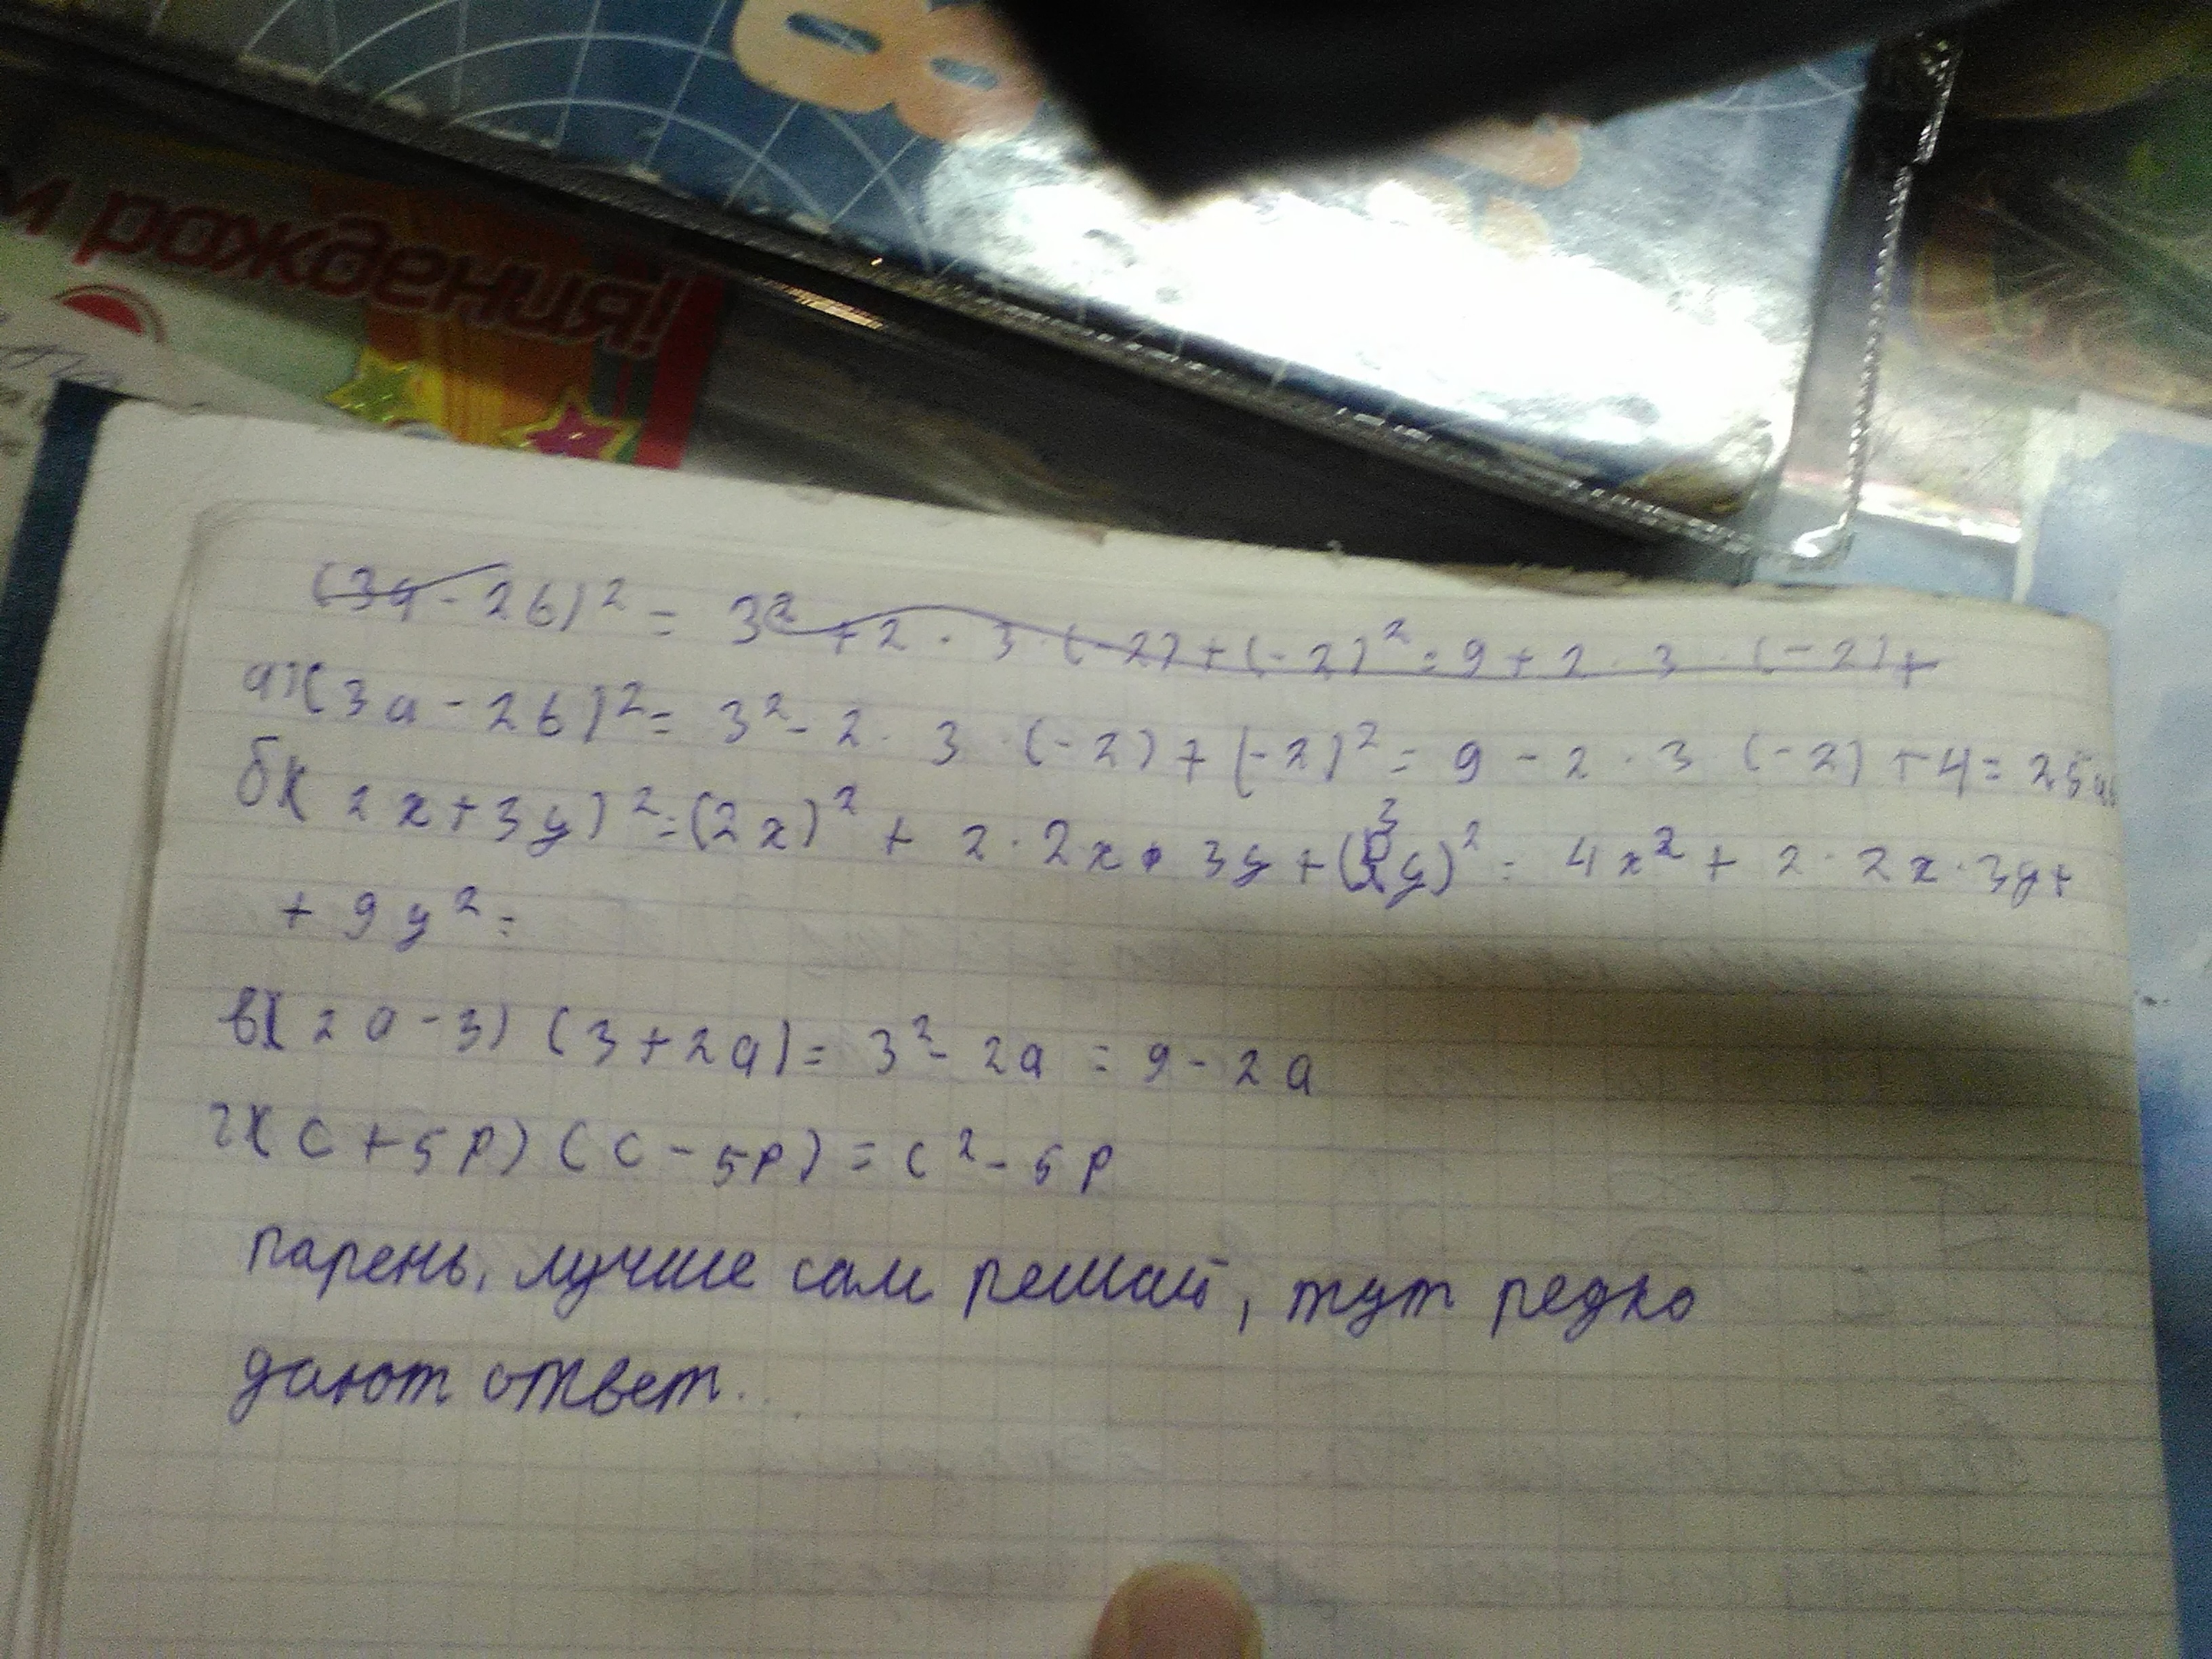 м рождения!
(3а - 2б)² = 3² + 2 · 3 · (-2) + (-2)² = 9 + 2 · 3 · (-2) +
а) (3а - 2б)² = 3² - 2 · 3 · (-2) + (-2)² = 9 - 2 · 3 · (-2) + 4 = 25аб
б) (2x + 3y)² = (2x)² + 2 · 2x · 3y + (3y)² = 4x² + 2 · 2x · 3y +
+ 9y² =
в) (2а - 3) (3 + 2а) = 3² - 2а = 9 - 2а
г) (с + 5р) (с - 5р) = с² - 5р
парень, лучше сам решай, тут редко
дают ответ.